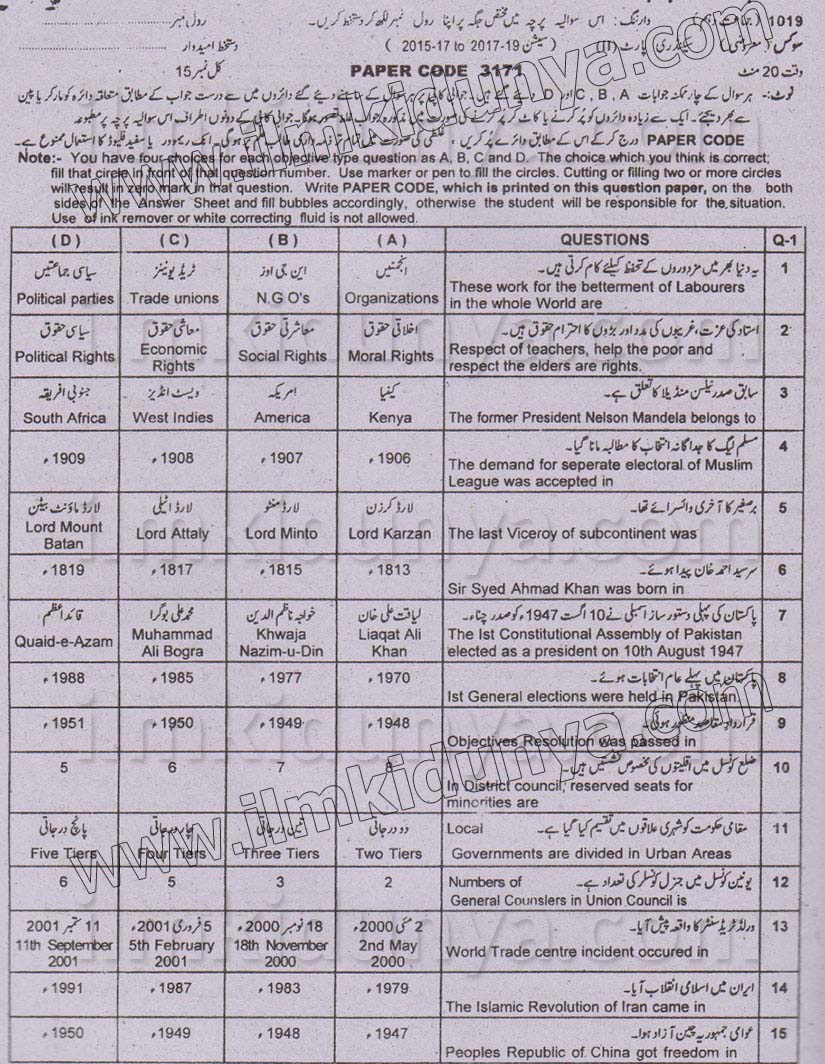 1019 (جماعت دہم) وارننگ: اس سوالیہ پرچہ میں مختص جگہ پر اپنا رول نمبر لکھ کر دستخط کریں۔ رول نمبر
سوکس (معروضی) سیکنڈری پارٹ (II) (سیشن 2015-17 to 2017-19) دستخط امیدوار
وقت 20 منٹ PAPER CODE 3171 کل نمبر 15
نوٹ:- ہر سوال کے چار ممکنہ جوابات A ,B ,C اور D دیئے گئے ہیں۔ جوابی کاپی پر ہر سوال کے سامنے دیئے گئے دائروں میں سے درست جواب کے مطابق متعلقہ دائرہ کو مارکر یا پین
سے بھر دیجئے۔ ایک سے زیادہ دائروں کو پُر کرنے یا کاٹ کر پُر کرنے کی صورت میں مذکورہ جواب غلط تصور ہوگا۔ جوابی کاپی کے دونوں اطراف اس سوالیہ پرچہ پر مطبوعہ
PAPER CODE درج کر کے اس کے مطابق دائرے پُر کریں، غلطی کی صورت میں تمام تر ذمہ داری طالب علم پر ہوگی۔ انک ریموور یا سفید فلیوڈ کا استعمال ممنوع ہے۔
Note:- You have four choices for each objective type question as A, B, C and D. The choice which you think is correct;
fill that circle in front of that question number. Use marker or pen to fill the circles. Cutting or filling two or more circles
will result in zero mark in that question. Write PAPER CODE, which is printed on this question paper, on the both
sides of the Answer Sheet and fill bubbles accordingly, otherwise the student will be responsible for the situation.
Use of ink remover or white correcting fluid is not allowed.
( D ) ( C ) ( B ) ( A ) QUESTIONS Q-1
سیاسی جماعتیں ٹریڈ یونینز این جی اوز انجمنیں یہ دنیا بھر میں مزدوروں کے تحفظ کیلئے کام کرتی ہیں۔ 1
Political parties Trade unions N.G.O's Organizations These work for the betterment of Labourers
in the whole World are
سیاسی حقوق معاشی حقوق معاشرتی حقوق اخلاقی حقوق استاد کی عزت، غریبوں کی مدد اور بڑوں کا احترام حقوق ہیں۔ 2
Political Rights Economic Rights Social Rights Moral Rights Respect of teachers, help the poor and
respect the elders are rights.
جنوبی افریقہ ویسٹ انڈیز امریکہ کینیا سابق صدر نیلسن منڈیلا کا تعلق ہے۔ 3
South Africa West Indies America Kenya The former President Nelson Mandela belongs to
مسلم لیگ کا جداگانہ انتخاب کا مطالبہ مانا گیا۔ 4
1909ء 1908ء 1907ء 1906ء The demand for seperate electoral of Muslim
League was accepted in
لارڈ ماؤنٹ بیٹن لارڈ اٹیلی لارڈ منٹو لارڈ کرزن برصغیر کا آخری وائسرائے تھا۔ 5
Lord Mount Batan Lord Attaly Lord Minto Lord Karzan The last Viceroy of subcontinent was
1819ء 1817ء 1815ء 1813ء سرسید احمد خان پیدا ہوئے۔ 6
Sir Syed Ahmad Khan was born in
قائداعظم محمد علی بوگرا خواجہ ناظم الدین لیاقت علی خان پاکستان کی پہلی دستور ساز اسمبلی نے 10 اگست 1947ء کو صدر چنا۔ 7
Quaid-e-Azam Muhammad Ali Bogra Khwaja Nazim-u-Din Liaqat Ali Khan The Ist Constitutional Assembly of Pakistan
elected as a president on 10th August 1947
1988ء 1985ء 1977ء 1970ء پاکستان میں پہلے عام انتخابات ہوئے۔ 8
Ist General elections were held in Pakistan.
1951ء 1950ء 1949ء 1948ء قرارداد مقاصد منظور ہوئی۔ 9
Objectives Resolution was passed in
5 6 7 8 ضلع کونسل میں اقلیتوں کی مخصوص نشستیں ہیں۔ 10
In District council, reserved seats for
minorities are
پانچ درجاتی چار درجاتی تین درجاتی دو درجاتی مقامی حکومت کو شہری علاقوں میں تقسیم کیا گیا ہے۔ Local 11
Five Tiers Four Tiers Three Tiers Two Tiers Governments are divided in Urban Areas
6 5 3 2 یونین کونسل میں جنرل کونسلر کی تعداد ہے۔ Numbers of 12
General Counslers in Union Council is
11 ستمبر 2001 5 فروری 2001ء 18 نومبر 2000ء 2 مئی 2000ء ورلڈ ٹریڈ سنٹر کا واقعہ پیش آیا۔ 13
11th September 2001 5th February 2001 18th November 2000 2nd May 2000 World Trade centre incident occured in
1991ء 1987ء 1983ء 1979ء ایران میں اسلامی انقلاب آیا۔ 14
The Islamic Revolution of Iran came in
1950ء 1949ء 1948ء 1947ء عوامی جمہوریہ چین آزاد ہوا۔ 15
Peoples Republic of China got freedom in
www.ilmkidunya.com
www.ilmkidunya.com
ilmkidunya.com
ilmkidunya.com
ilmkidunya.com